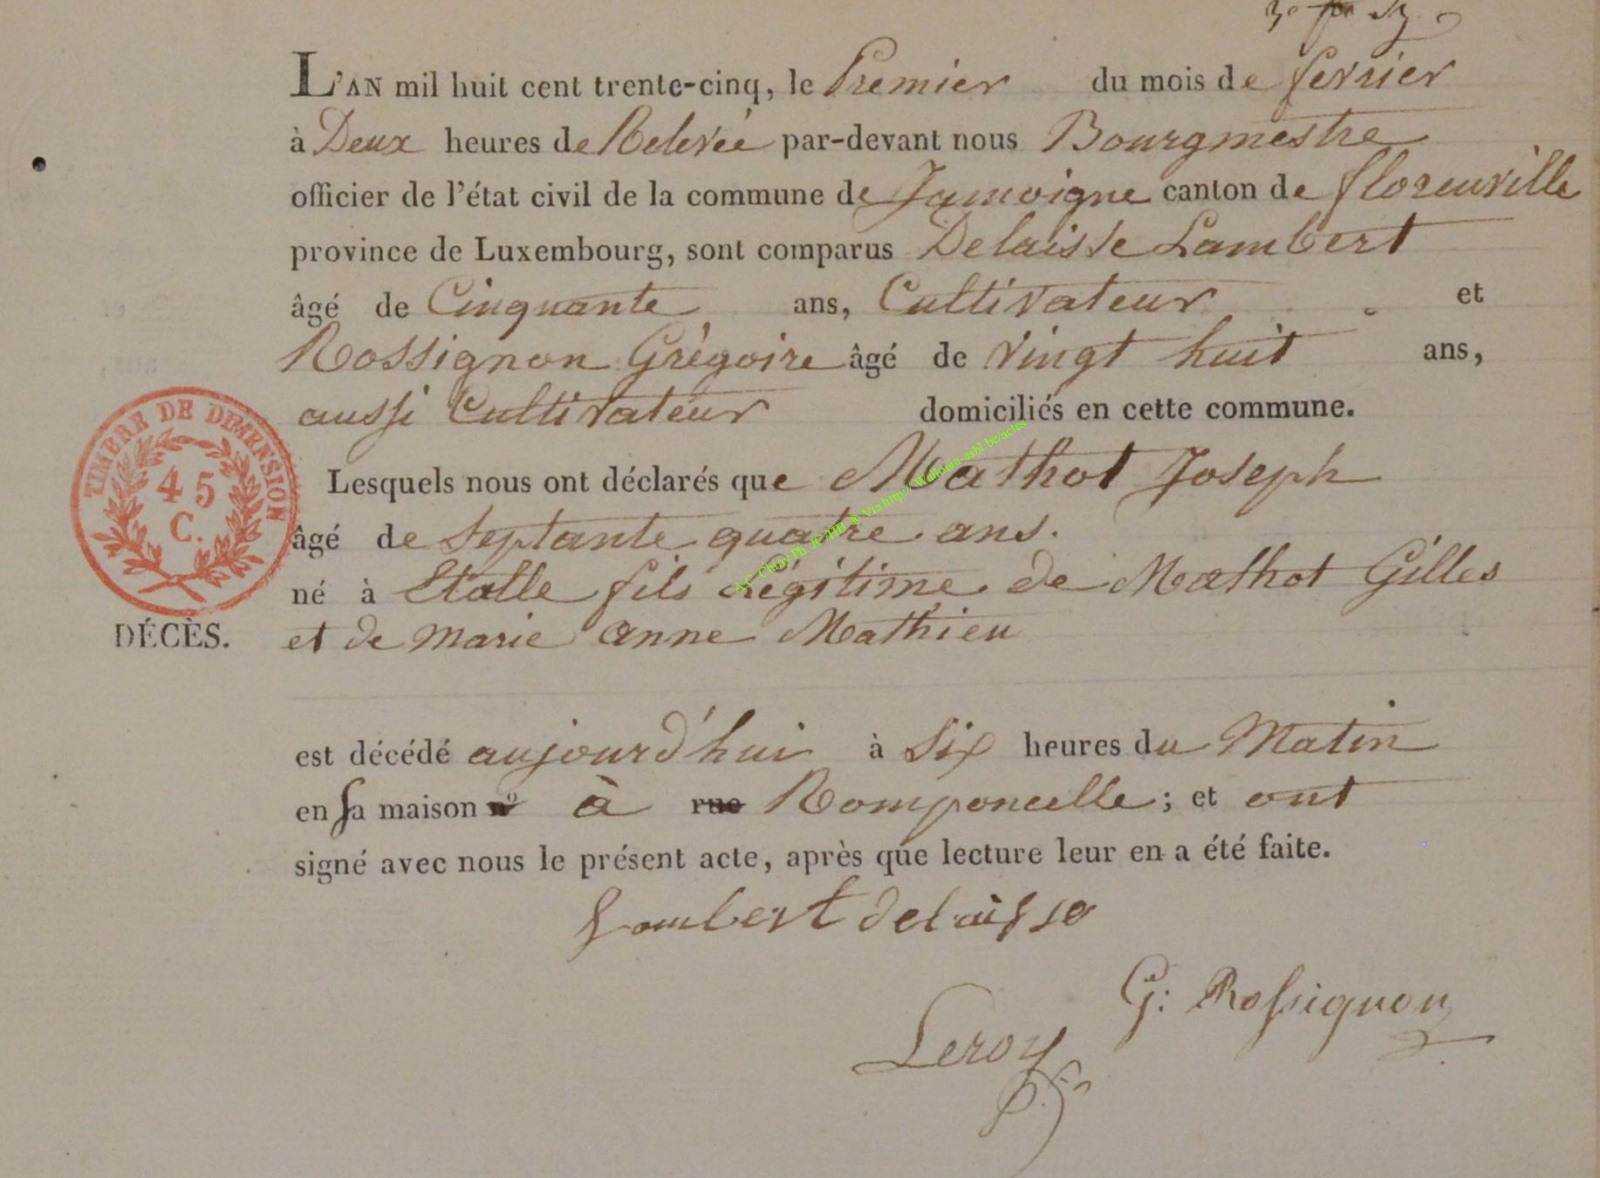 L'AN mil huit cent trente-cinq, le Premier du mois de fevrier
à Deux heures de Relevée par-devant nous Bourgmestre
officier de l'état civil de la commune de Jamoigne canton de florenville
province de Luxembourg, sont comparus Delaisse Lambert
âgé de Cinquante ans, Cultivateur et
Rossignon Grégoire âgé de vingt huit ans,
aussi Cultivateur domiciliés en cette commune.
TIMBRE DE DIMENSION
45
C.
Lesquels nous ont déclarés que Mathot Joseph
âgé de Septante quatre ans.
né à Etalle fils Légitime de Mathot Gilles
DÉCÈS.
et de Marie Anne Mathieu
est décédé aujourd'hui à Six heures du Matin
en sa maison n° à rue Romponcelle; et ont
signé avec nous le présent acte, après que lecture leur en a été faite.
Lambert delaisse
G: Rossignon
Leroy